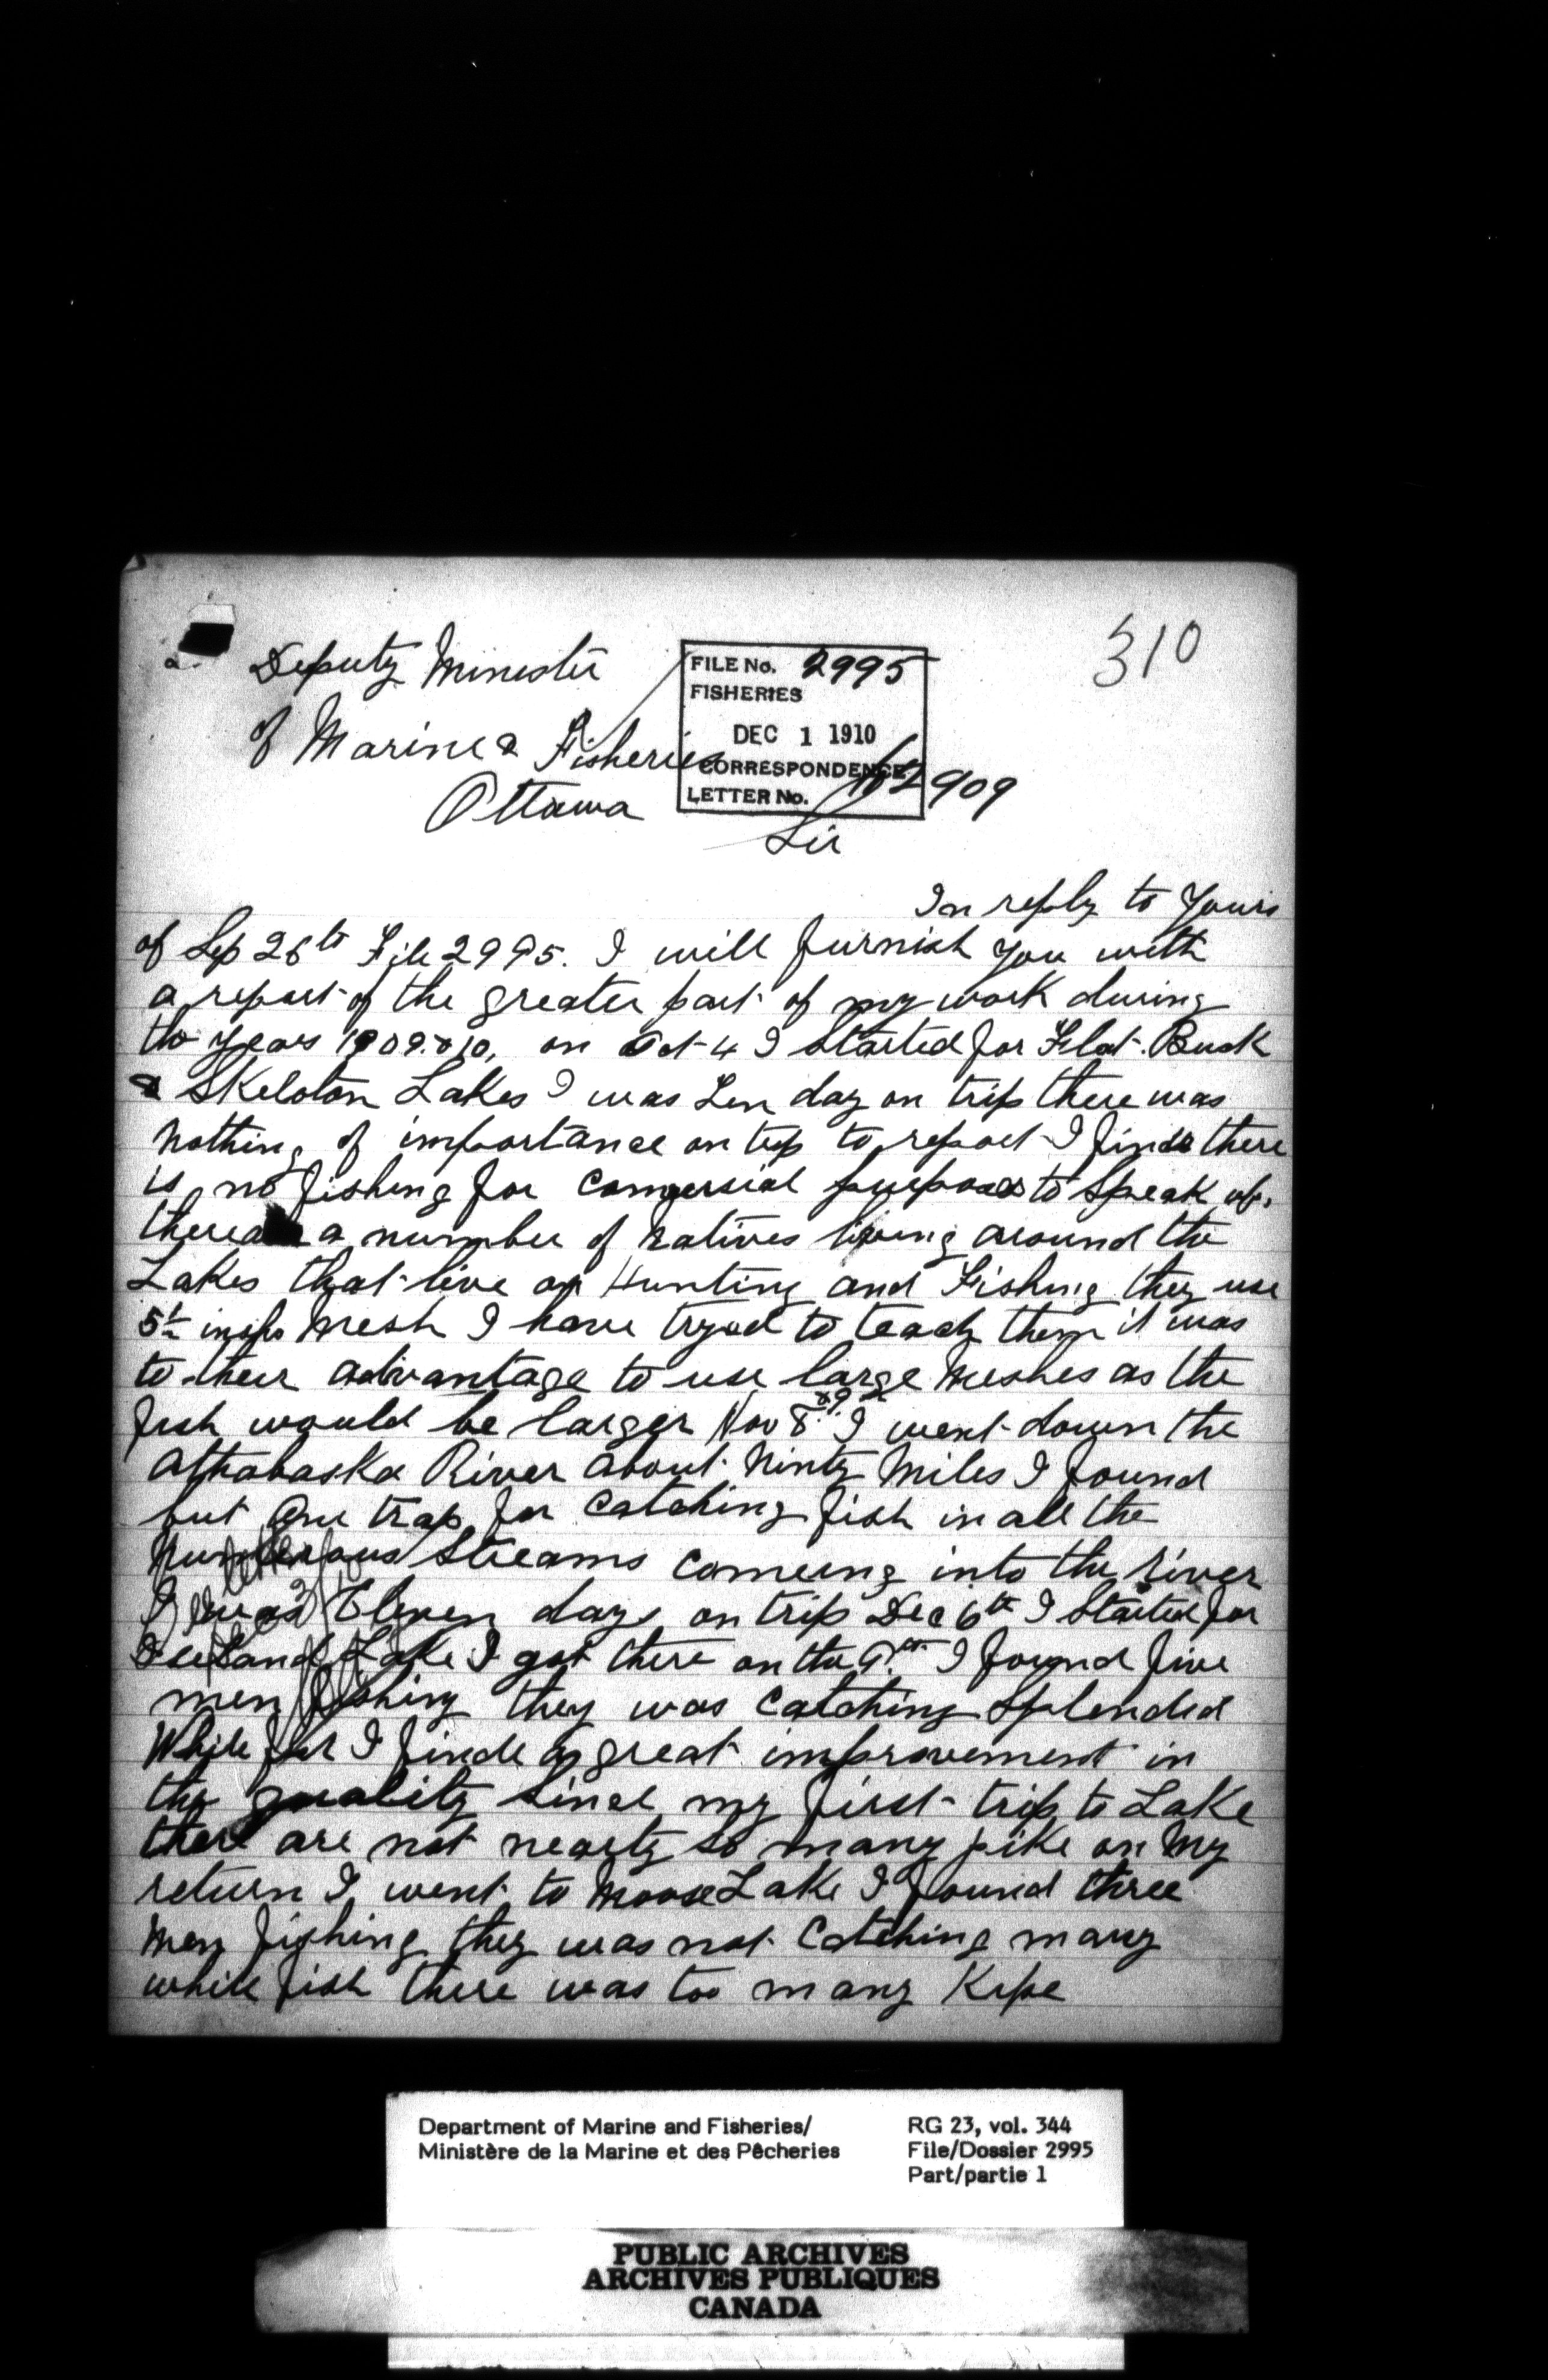 310
Deputy Minister
of Marine & Fisheries
Ottawa
FILE No. 2995
FISHERIES
DEC 1 1910
CORRESPONDENCE
LETTER No. 909
Sir
In reply to Yours
of Sep 28th File 2995. I will furnish you with
a report of the greater part of my work during
the years 1909.&10, on Oct 4 I Started for Flat. Buck
& Skeloton Lakes I was ten day on trip there was
nothing of importance on trip to report I finde there
is no fishing for comersial purposes to Speak of,
there a number of natives living around the
Lakes that live on Hunting and Fishing they use
5½ inch Mesh I have tryed to teach them it was
to their advantage to use large Meshes as the
fish would be larger Nov 8th 09 I went down the
Athabaska River about Ninty Miles I found
but One trap for Catching fish in all the
Numerous Streams comeing into the River
I was Eleven days on trip Dec 6th I Started for
Lake I got there on the 9th I found five
men fishing they was Catching Splended
White fish I finde a great improvement in
the quality Since my first trip to Lake
there are not nearly so many pike on My
return I went to Moose Lake I found three
Men fishing they was not Catching many
while fish there was too many Kipe
Department of Marine and Fisheries/
Ministère de la Marine et des Pêcheries
RG 23, vol. 344
File/Dossier 2995
Part/partie 1
PUBLIC ARCHIVES
ARCHIVES PUBLIQUES
CANADA